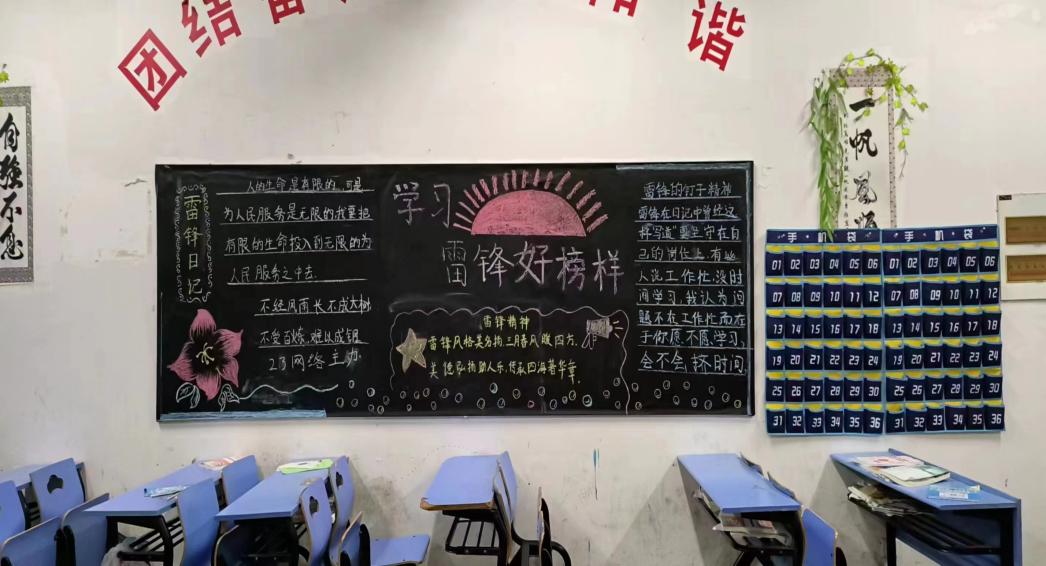 团结奋
和
谐
自强不息
一帆风顺
雷锋日记
人的生命是有限的,可是
为人民服务是无限的我要把
有限的生命投入到无限的为
人民服务之中去.
不经风雨长不成大树
不受百炼,难以成钢
23网络主办
学习
雷锋好榜样
雷锋精神
雷锋风格美名扬三月春风暖四方.
美德弘扬助人乐,传承四海著华章.
雷锋的钉子精神
雷锋在日记中曾经这
样写道"要坚守在自
己的岗位上.有些
人说工作忙、没时
间学习.我认为问
题不在工作忙,而在
于你愿不愿学习,
会不会挤时间,
手机袋 手机袋
01 02 03 04 05 06 01 02 03 04 05 06
07 08 09 10 11 12 07 08 09 10 11 12
13 14 15 16 17 18 13 14 15 16 17 18
19 20 21 22 23 24 19 20 21 22 23 24
25 26 27 28 29 30 25 26 27 28 29 30
31 32 33 34 35 36 31 32 33 34 35 36